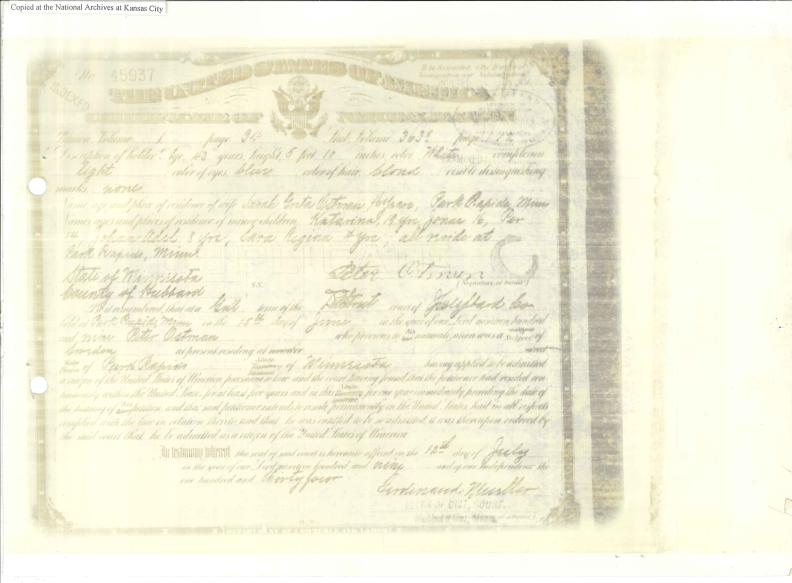 Copied at the National Archives at Kansas City
No. 45937
THE UNITED STATES OF AMERICA
CERTIFICATE OF NATURALIZATION
Petition, Volume 1 page 34 Stub, Volume 3638 page
Description of holder: Age, 43 years; height, 5 feet, 10 inches; color, White; complexion,
light; color of eyes, blue; color of hair, blond; visible distinguishing
marks, none
Name, age and place of residence of wife, Sarah Greta Ostman Park Rapids, Minn
Names, ages and places of residence of minor children, Katarina, Jonas 16, Per
14, 8 yrs, Sara Regina 4 yrs, all reside at
Park Rapids, Minn.
State of Minnesota
County of Hubbard
S.S.
Peter Ostman
(Signature of holder)
Be it remembered, that at a term of the District court of Hubbard Co
held at Park Rapids, Minn on the 15th day of June in the year of our Lord nineteen hundred
and nine Peter Ostman who previous to his naturalization was a subject of
Sweden at present residing at number street
of Park Rapids State of Minnesota having applied to be admitted
a citizen of the United States of America pursuant to law, and the court having found that the petitioner had resided con-
tinuously within the United States for at least five years and in this State for one year immediately preceding the date of
the hearing of his petition, and that said petitioner intends to reside permanently in the United States, had in all respects
complied with the law in relation thereto, and that he was entitled to be so admitted, it was thereupon ordered by
the said court that he be admitted as a citizen of the United States of America
In testimony whereof the seal of said court is hereunto affixed on the 12th day of July
in the year of our Lord nineteen hundred and nine and of our Independence the
one hundred and thirty four
Ferdinand Mueller
CLERK OF DIST. COURT.
DEPARTMENT OF COMMERCE AND LABOR